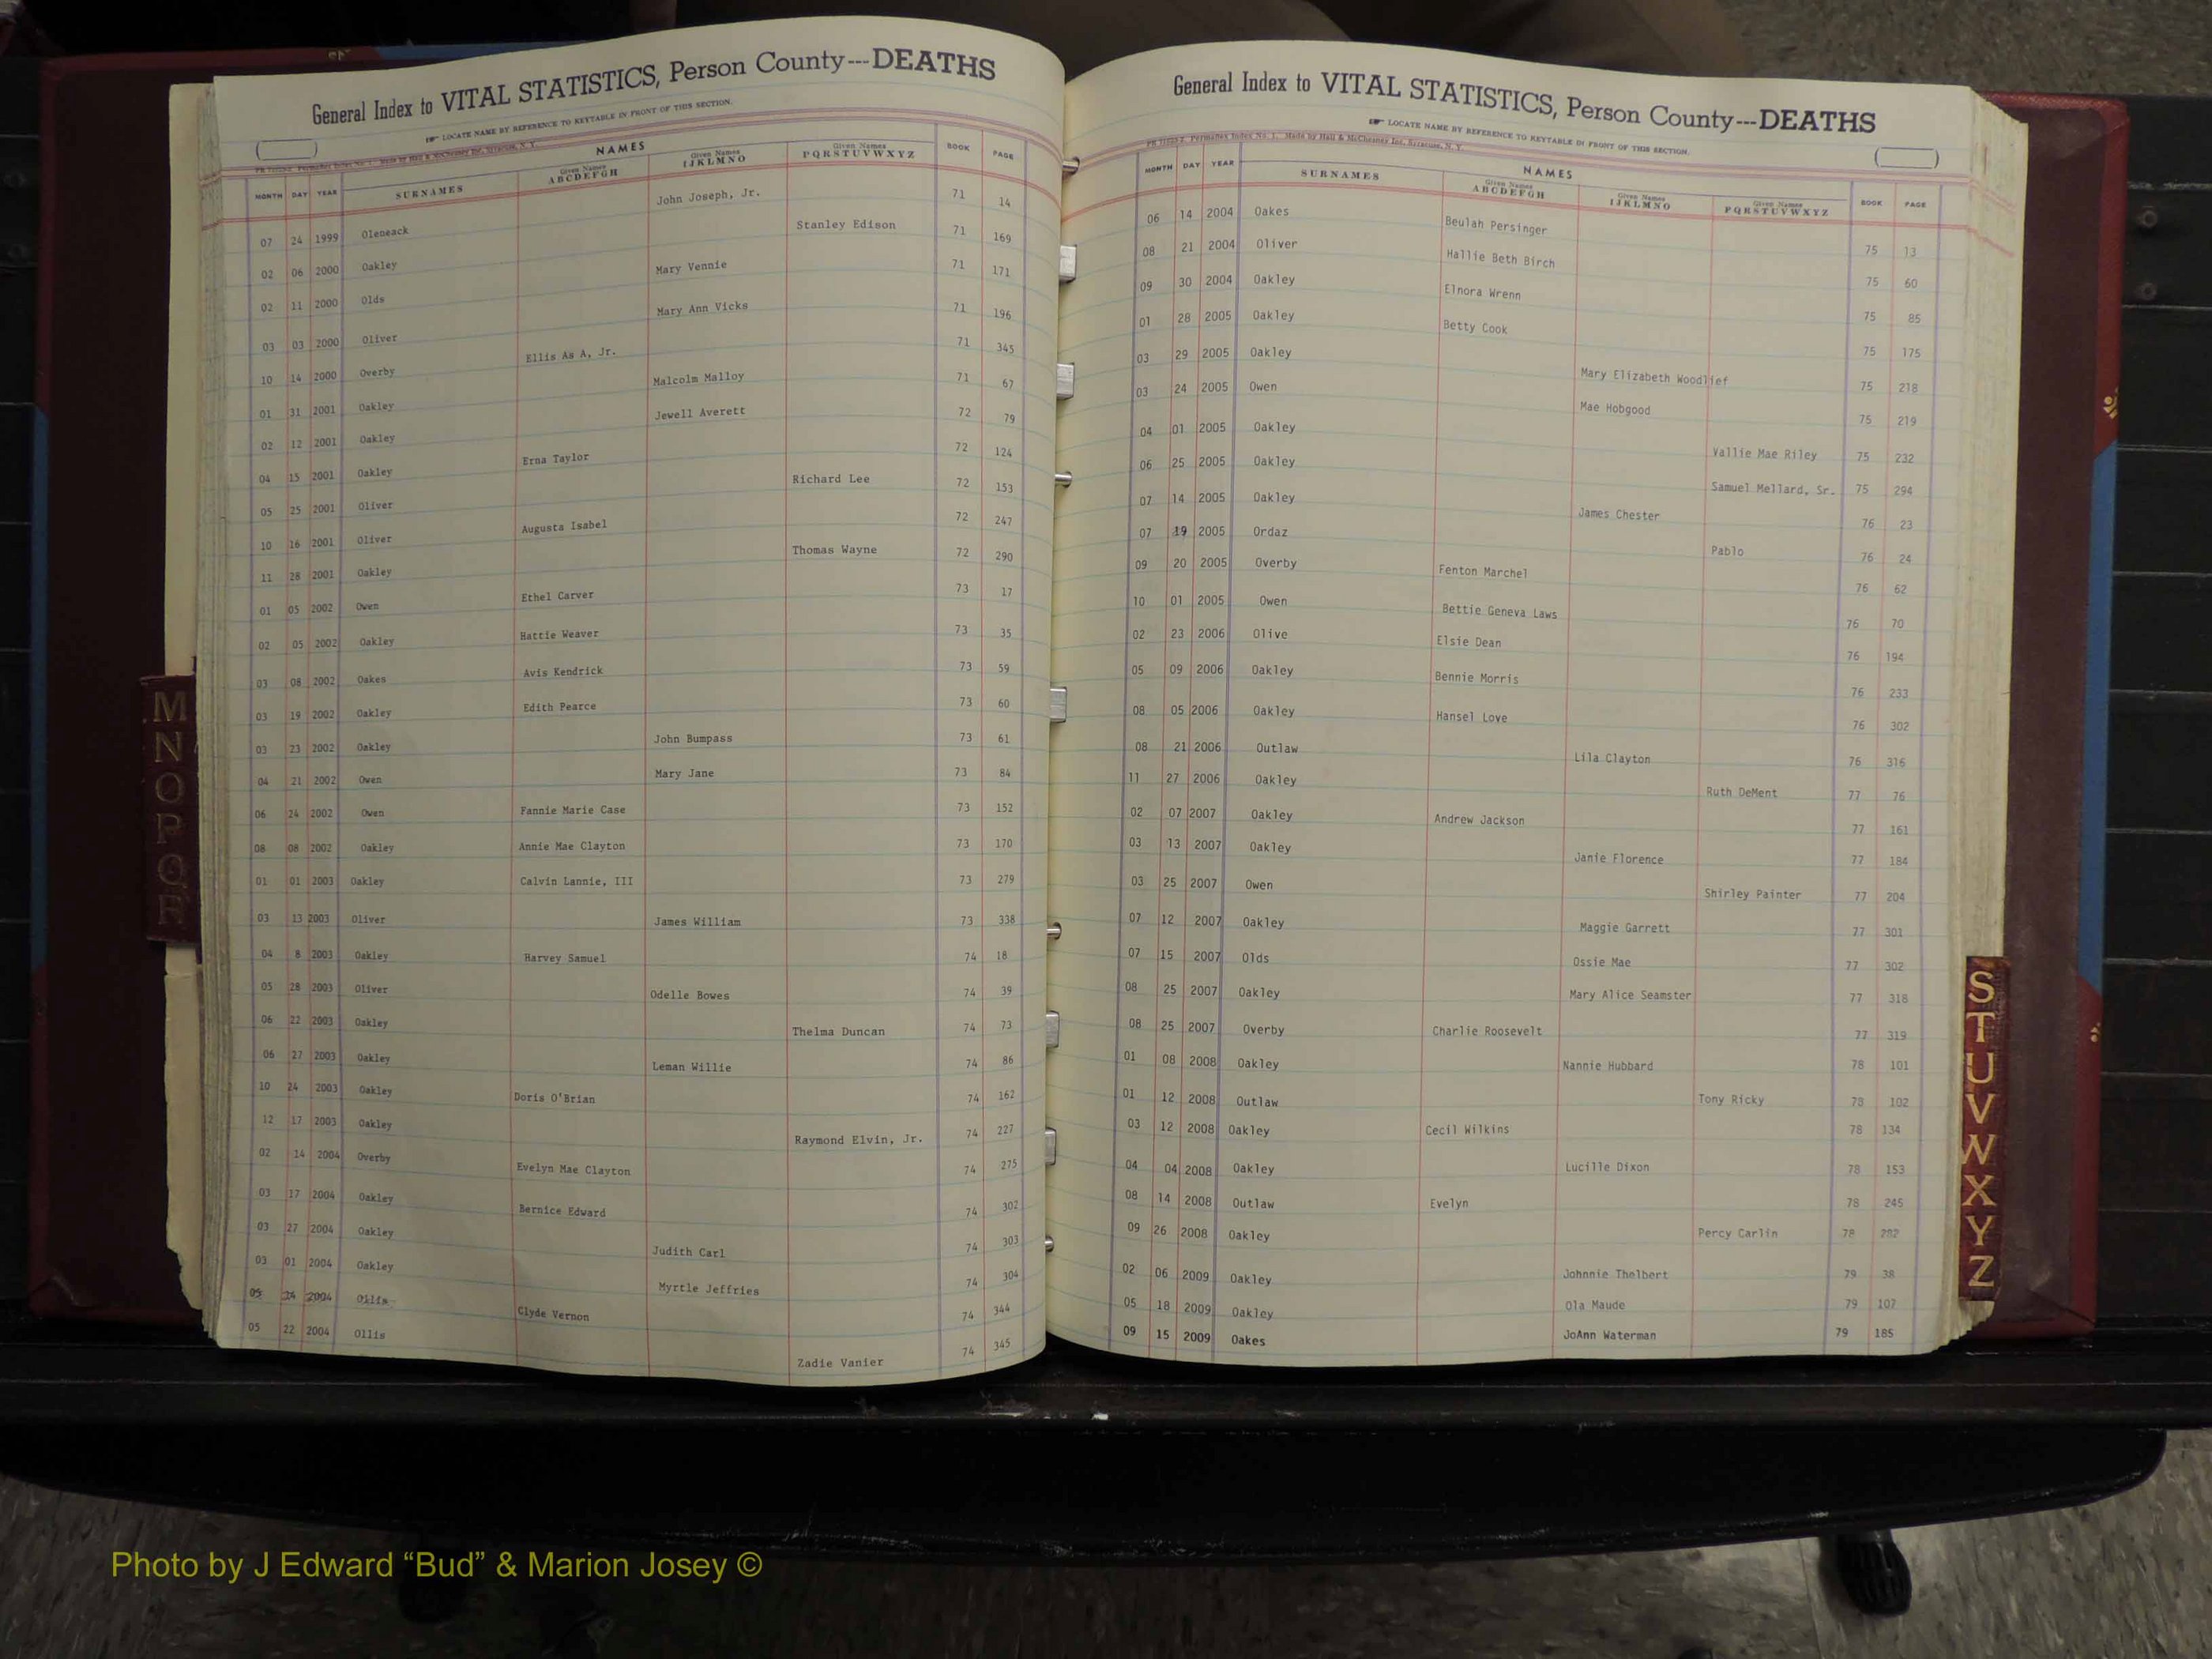 General Index to VITAL STATISTICS, Person County---DEATHS
LOCATE NAME BY REFERENCE TO KEYTABLE IN FRONT OF THIS SECTION.
NAMES
MONTH DAY YEAR SURNAMES Given Names ABCDEFGH Given Names IJKLMNO Given Names PQRSTUVWXYZ BOOK PAGE
07 24 1999 Oleneack John Joseph, Jr. 71 14
02 06 2000 Oakley Stanley Edison 71 169
02 11 2000 Olds Mary Vennie 71 171
03 03 2000 Oliver Mary Ann Vicks 71 196
10 14 2000 Overby Ellis As A, Jr. 71 345
01 31 2001 Oakley Malcolm Malloy 71 67
02 12 2001 Oakley Jewell Averett 72 79
04 15 2001 Oakley Erna Taylor 72 124
05 25 2001 Oliver Richard Lee 72 153
10 16 2001 Oliver Augusta Isabel 72 247
11 28 2001 Oakley Thomas Wayne 72 290
01 05 2002 Owen Ethel Carver 73 17
02 05 2002 Oakley Hattie Weaver 73 35
03 08 2002 Oakes Avis Kendrick 73 59
03 19 2002 Oakley Edith Pearce 73 60
03 23 2002 Oakley John Bumpass 73 61
04 21 2002 Owen Mary Jane 73 84
06 24 2002 Owen Fannie Marie Case 73 152
08 08 2002 Oakley Annie Mae Clayton 73 170
01 01 2003 Oakley Calvin Lannie, III 73 279
03 13 2003 Oliver James William 73 338
04 8 2003 Oakley Harvey Samuel 74 18
05 28 2003 Oliver Odelle Bowes 74 39
06 22 2003 Oakley Thelma Duncan 74 73
06 27 2003 Oakley Leman Willie 74 86
10 24 2003 Oakley Doris O'Brian 74 162
12 17 2003 Oakley Raymond Elvin, Jr. 74 227
02 14 2004 Overby Evelyn Mae Clayton 74 275
03 17 2004 Oakley Bernice Edward 74 302
03 27 2004 Oakley Judith Carl 74 303
03 01 2004 Oakley Myrtle Jeffries 74 304
05 24 2004 Ollis Clyde Vernon 74 344
05 22 2004 Ollis Zadie Vanier 74 345
General Index to VITAL STATISTICS, Person County---DEATHS
LOCATE NAME BY REFERENCE TO KEYTABLE IN FRONT OF THIS SECTION.
Permadex Index No. 1. Made by Hall & McChesney Inc. Syracuse, N. Y.
NAMES
MONTH DAY YEAR SURNAMES Given Names ABCDEFGH Given Names IJKLMNO Given Names PQRSTUVWXYZ BOOK PAGE
06 14 2004 Oakes Beulah Persinger 75 13
08 21 2004 Oliver Hallie Beth Birch 75 60
09 30 2004 Oakley Elnora Wrenn 75 85
01 28 2005 Oakley Betty Cook 75 175
03 29 2005 Oakley Mary Elizabeth Woodlief 75 218
03 24 2005 Owen Mae Hobgood 75 219
04 01 2005 Oakley Vallie Mae Riley 75 232
06 25 2005 Oakley Samuel Mellard, Sr. 75 294
07 14 2005 Oakley James Chester 76 23
07 19 2005 Ordaz Pablo 76 24
09 20 2005 Overby Fenton Marchel 76 62
10 01 2005 Owen Bettie Geneva Laws 76 70
02 23 2006 Olive Elsie Dean 76 194
05 09 2006 Oakley Bennie Morris 76 233
08 05 2006 Oakley Hansel Love 76 302
08 21 2006 Outlaw Lila Clayton 76 316
11 27 2006 Oakley Ruth DeMent 77 76
02 07 2007 Oakley Andrew Jackson 77 161
03 13 2007 Oakley Janie Florence 77 184
03 25 2007 Owen Shirley Painter 77 204
07 12 2007 Oakley Maggie Garrett 77 301
07 15 2007 Olds Ossie Mae 77 302
08 25 2007 Oakley Mary Alice Seamster 77 318
08 25 2007 Overby Charlie Roosevelt 77 319
01 08 2008 Oakley Nannie Hubbard 78 101
01 12 2008 Outlaw Tony Ricky 78 102
03 12 2008 Oakley Cecil Wilkins 78 134
04 04 2008 Oakley Lucille Dixon 78 153
08 14 2008 Outlaw Evelyn 78 245
09 26 2008 Oakley Percy Carlin 78 282
02 06 2009 Oakley Johnnie Thelbert 79 38
05 18 2009 Oakley Ola Maude 79 107
09 15 2009 Oakes JoAnn Waterman 79 185
M
N
O
P
Q
R
S
T
U
V
W
X
Y
Z
Photo by J Edward “Bud” & Marion Josey ©